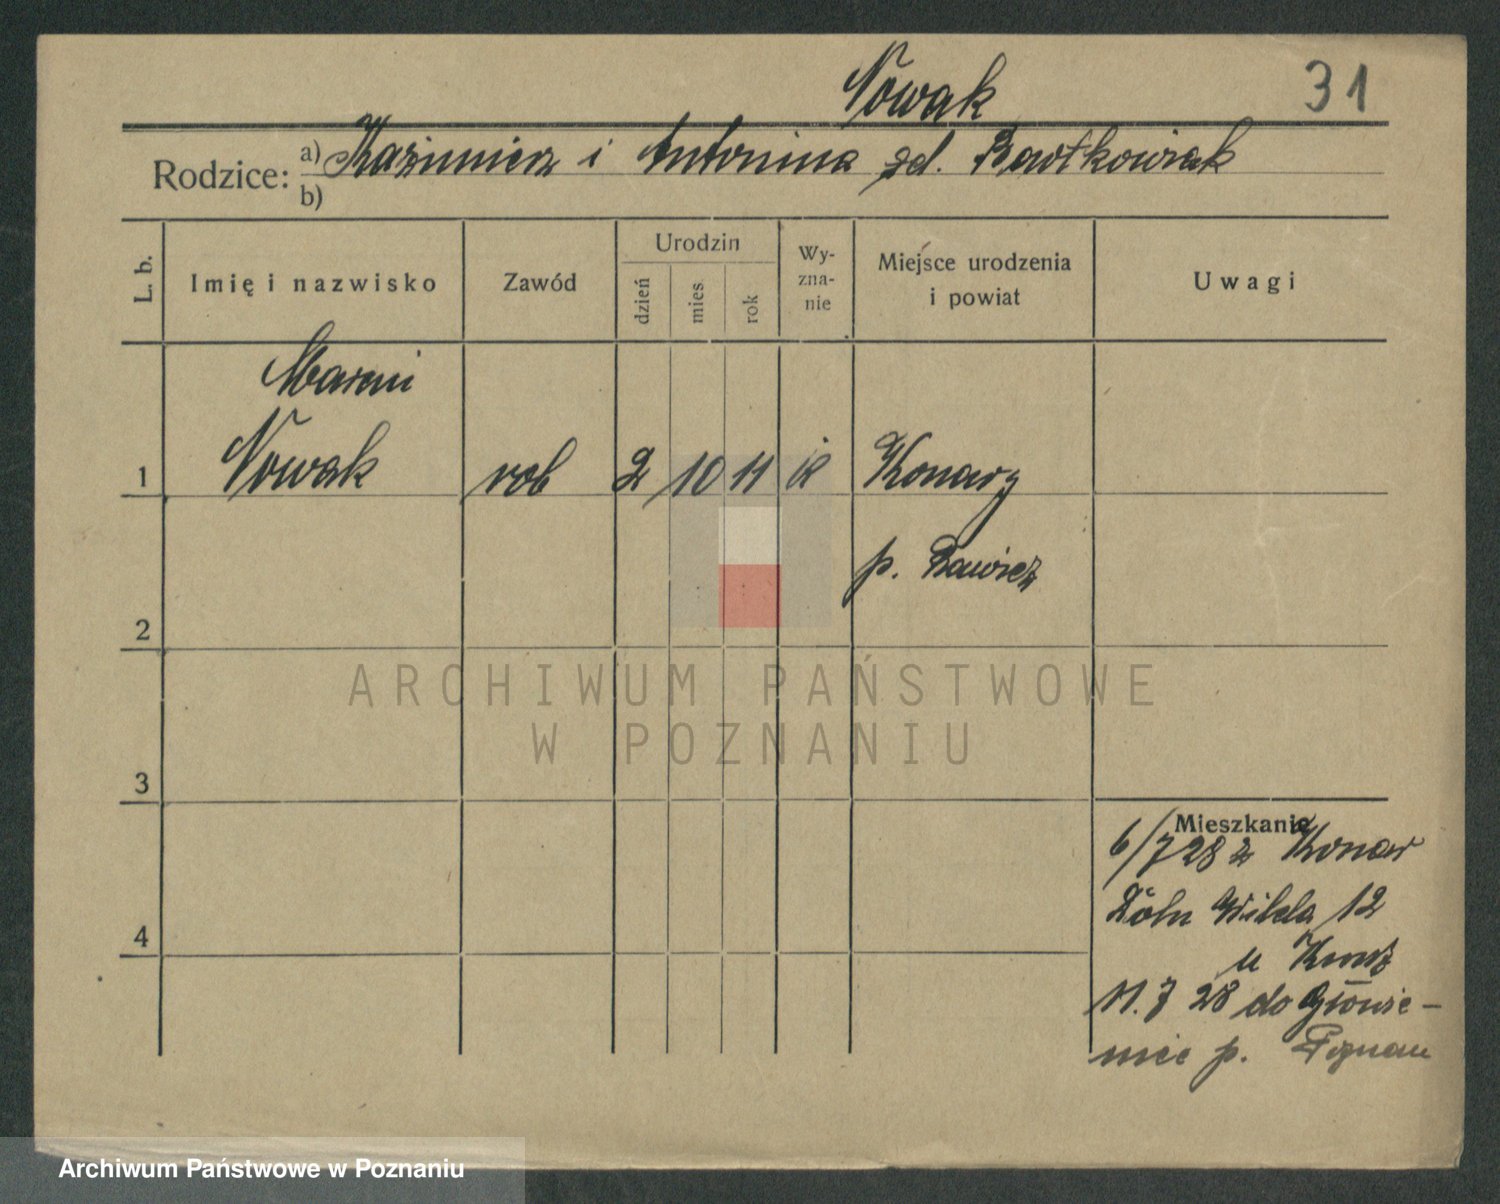 Nowak
31
Rodzice: a) Kazimierz i Antonina zd. Bartkowiak
b)
L. b.
Imię i nazwisko
Zawód
Urodzin
dzień
mies
rok
Wy-
zna-
nie
Miejsce urodzenia
i powiat
Uwagi
Marcin
1 Nowak rob 2 10 11 k Konary
p. Rawicz
2
3
4
Mieszkanie
6/7 28 z Konar
Döln Wilda 12
u
11.7 28 do Głowie-
nice p. Poznan
ARCHIWUM PAŃSTWOWE
W POZNANIU
Archiwum Państwowe w Poznaniu